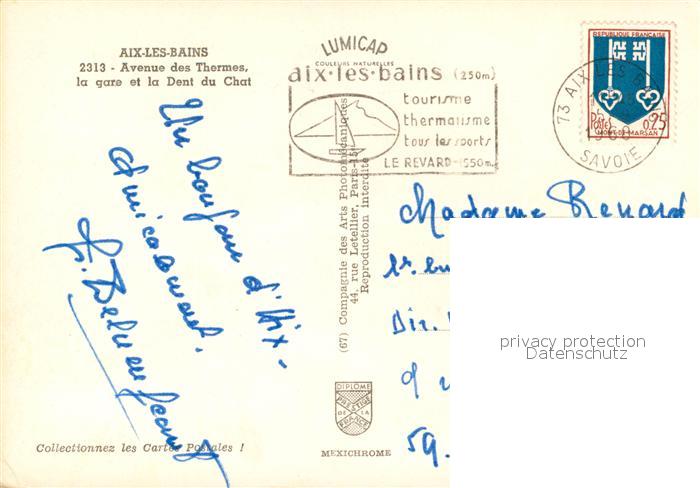 AIX-LES-BAINS
2313 - Avenue des Thermes,
la gare et la Dent du Chat
LUMICAP
COULEURS NATURELLES
aix·les·bains (250m)
tourisme
thermalisme
tous les sports
LE REVARD-1550m
REPUBLIQUE FRANÇAISE
Postes 0,25
MONT-DE-MARSAN
73 AIX LES B
SAVOIE
Un bonjour d'Aix-
amicalement.
(67) Compagnie des Arts Photomécaniques
44, rue Letellier, Paris-15
Reproduction interdite
Madame Renard
Dir.
59.
privacy protection
Datenschutz
DIPLOME
PRESTIGE
DE LA
FRANCE
MEXICHROME
Collectionnez les Cartes Postales !